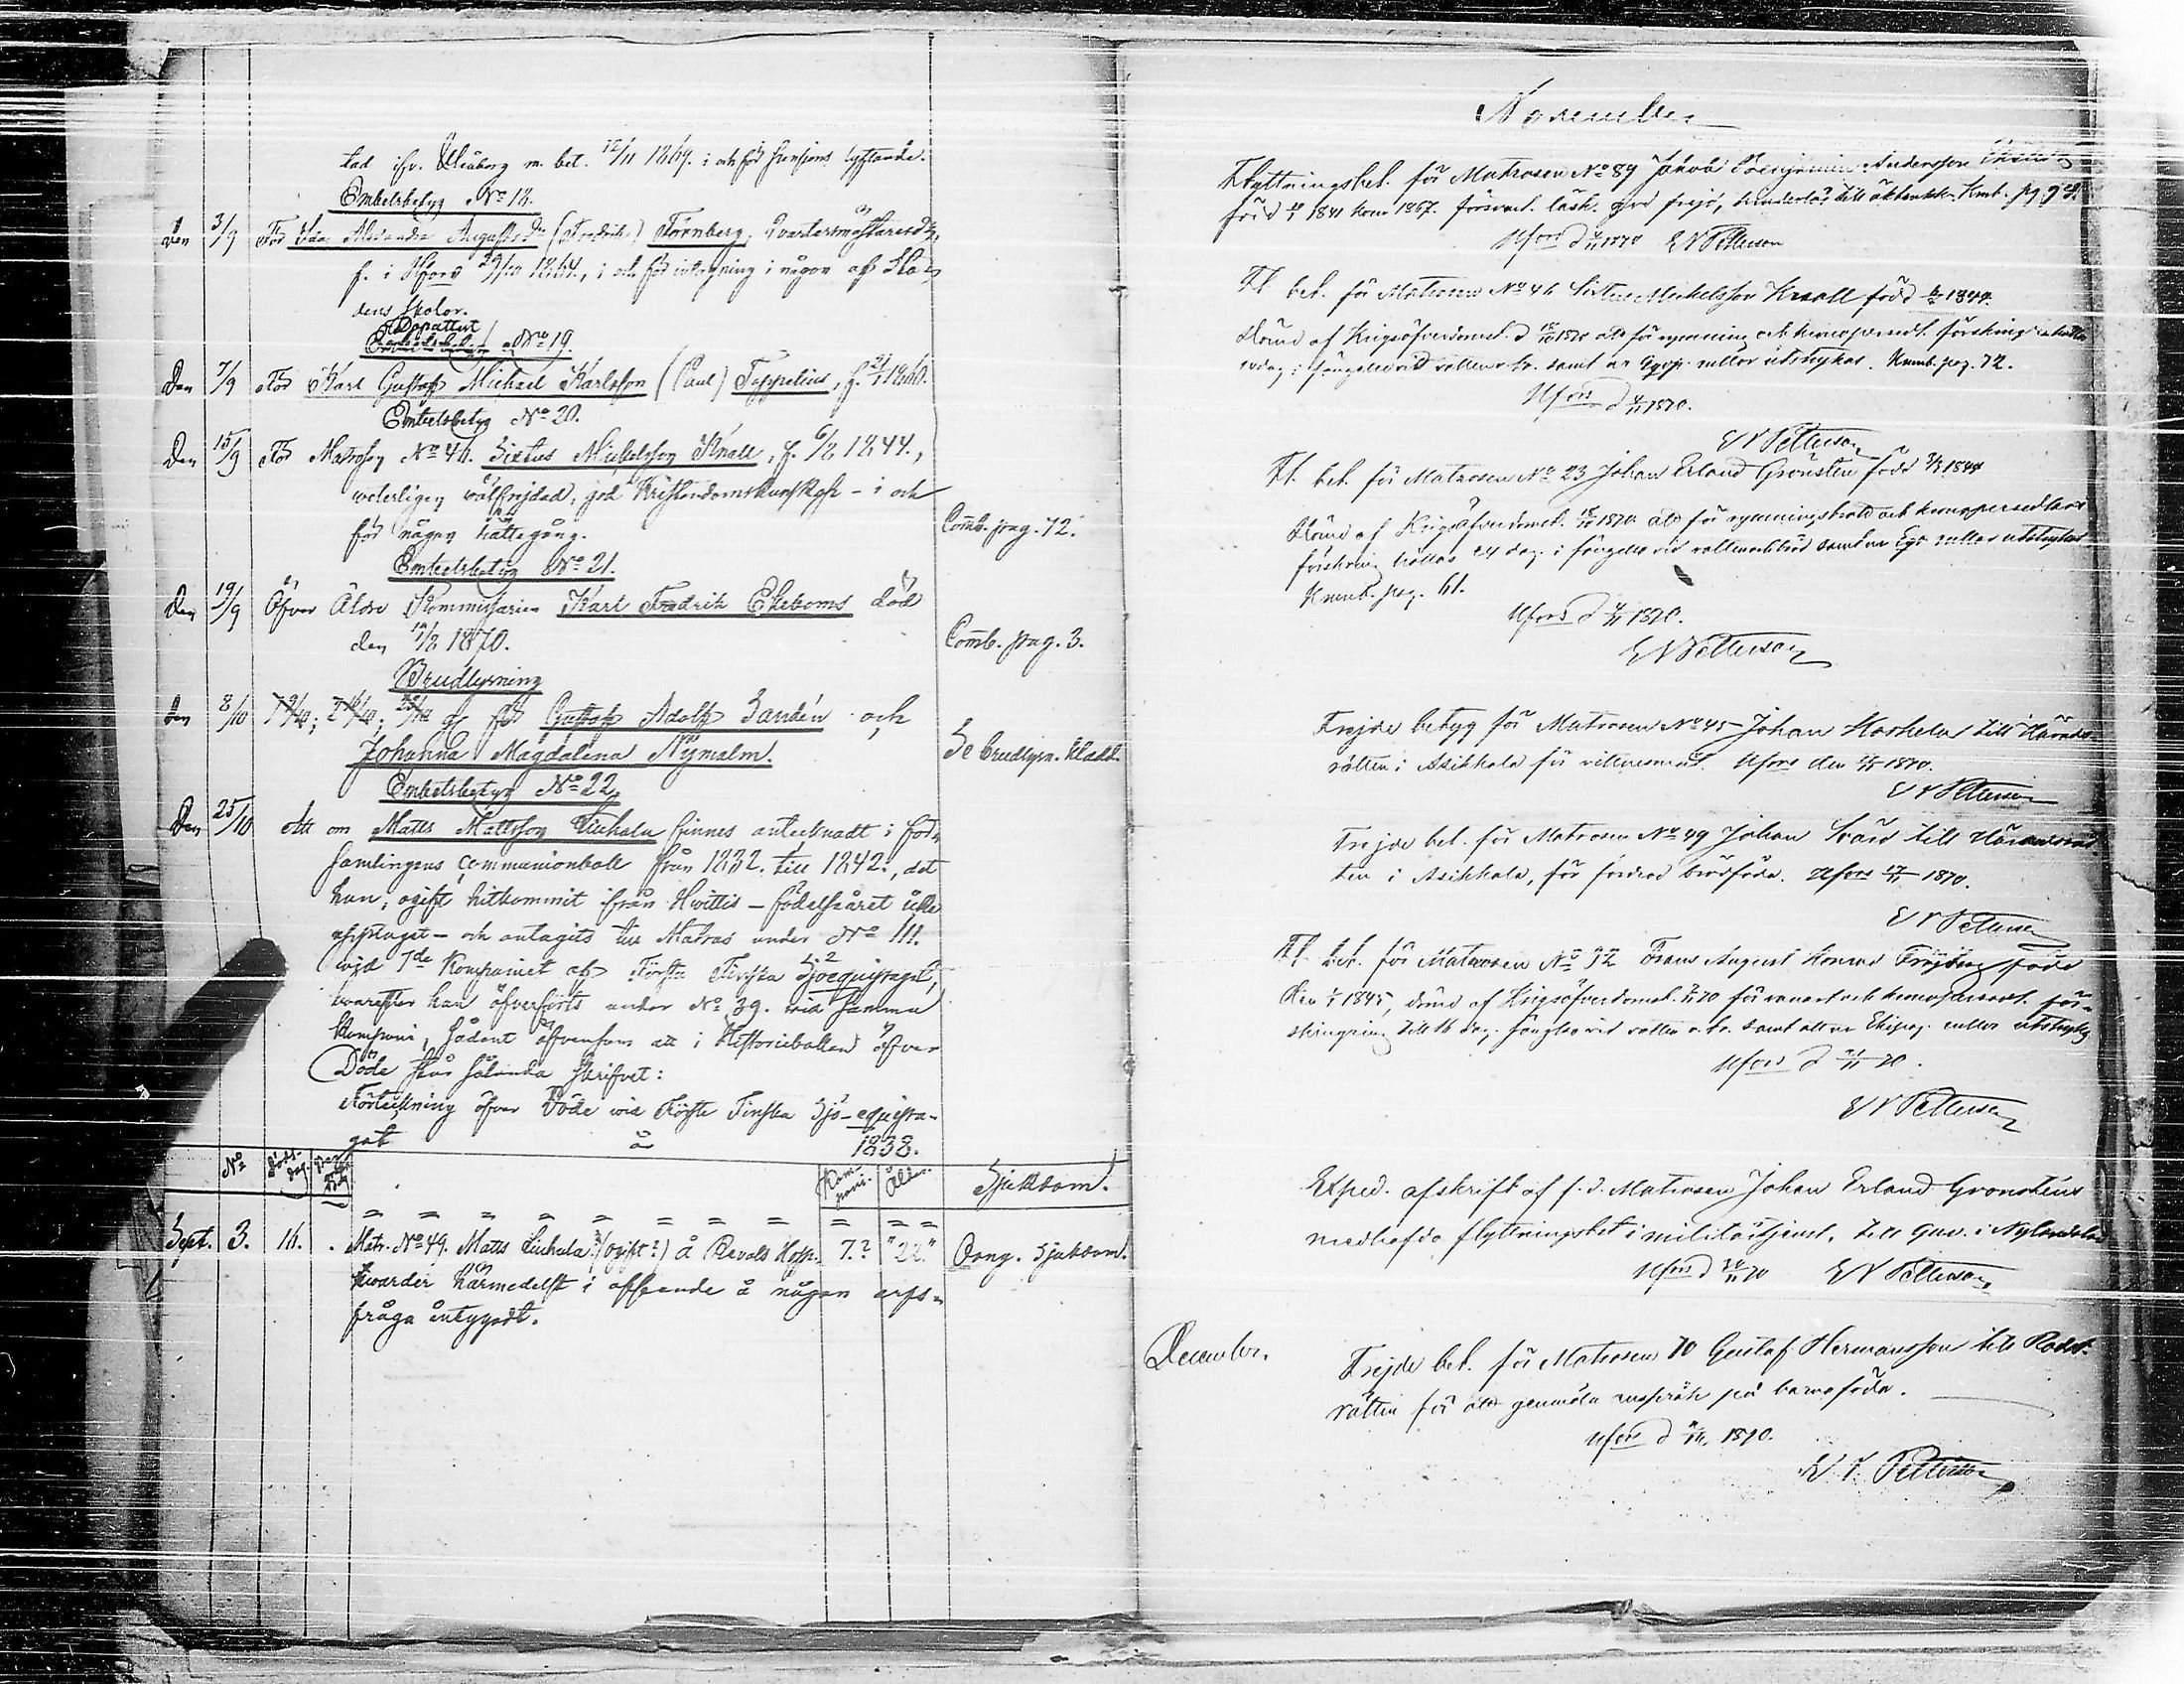 tad ifr. Uleåborg m. bet. 12/11 1869. i och för pensions lyftande.
Embetsbetyg No 18.
Den 3/9 För Ida Alexandra Augusta (Fredrik) Törnberg, Qvartersmästaredr,
f. i Hfors 29/10 1864., i och för intagning i någon af Sta-
dens skolor.
No 19.
Den 7/9 För Karl Gustaf Michael Karlsson (Paul) Toppelius, f. 1860.
Embetsbetyg No 20.
Den 15/9 För Matrosen No 46. Sixtus Mickelsson Knall, f. 6/2 1844.,
wederligen wälfrejdad, god Kristendomskunskap - i och
för någon rättegång.
Comb. pag. 72.
Embetsbetyg No 21.
Den 19/9 Öfver Äldre Kommissarien Karl Fredrik Ekeboms död
den 1870.
Comb. pag. 3.
Brudlysning
Den 8/10 för Gustaf Adolf Sandén och
Johanna Magdalena Nymalm.
Se brudlysn. kladd.
Embetsbetyg No 22
Den 25/10 Att om Matts Mattsson Liuhala finnes antecknadt i för-
samlingens communionbok från 1832. till 1842., det
han, ogift hitkommit ifrån Hvittis - födelseåret icke
upptaget - och antagits till Matros under No 111.
wid 7de Kompaniet af Första Finska Sjöequipaget,
hvarefter han öfverförts under No 39. wid samma
Kompani, sådant äfvensom att i Historieboken öfver
Döde står sålunda skrifvet:
Förteckning öfver Döde wid Första Finska Sjö-equipa-
get år 1838.
No Döds-dag. Kom-pani. Ålder. Sjukdom.
Sept. 3. 16. . Matr. No 49. Matts Liuhala (ogift?) å Revals Hosp. 7.? "22" Bång. Sjukdom.
hwarder härmedelst i afseende å någon arfs-
fråga intygadt.
November
Flyttningsbet. för Matrosen No 89 Johan Benjamin Andersson
född 1841 kom 1867. försvarl. läsk. god frejd, hinderlös till äktensk. Kmb. pg 94.
Hfors d 1870 E N Petterson
Fl. bet. för Matrosen No 46 Sixtus Mickelsson Knall född 6/2 1844.
Dömd af Krigsöfverdomst. d 1870 att för rymning och kronopersedl. förskingr. hållas
dag. i fängelse vid vatten o br. samt ur Eqvip. rullor utstrykas. Kmb. pag. 72.
Hfors d 1870.
E N Petterson
Fl. bet. för Matrosen No 23 Johan Erland Grönsten född 1844
Dömd af Krigsöfverdomst. 1870 att för rymningsbrott och kronopersedlars
förskingr. hållas 24 dag. i fängelse vid vatten och bröd samt ur Eqv. rullor utstrykas
Kmb. pag. 61.
Hfors d 1870.
E N Petterson
Frejde betyg för Matrosen No 45 Johan Koskela till Härads-
rätten i Asikkala för vittnesmål. Hfors den 1870.
E N Petterson
Frejde bet. för Matrosen No 49 Johan Svärd till Häradsrät-
ten i Asikkala, för fordrad barnföda. Hfors 1870.
E N Petterson
Fl. bet. för Matrosen No 92 Frans August Konrad född
den 1845, dömd af Krigsöfverdomst. 70 för och kronopersedl. för-
skingring till 16 dag. fängelse vid vatten o. br. samt att ur Ekipag. rullor utstrykas
Hfors d 70.
E N Petterson
Exped. afskrift af f. d. Matrosen Johan Erland Gronstens
medhafda flyttningsbet i militärtjenst, till Guv. i Nylands län
Hfors d 70 E N Petterson
December.
Frejde bet. för Matrosen 70 Gustaf Hermansson till Rådst.
rätten för att genmäla anspråk på barnaföda.
Hfors d 1870.
E. N. Petterson